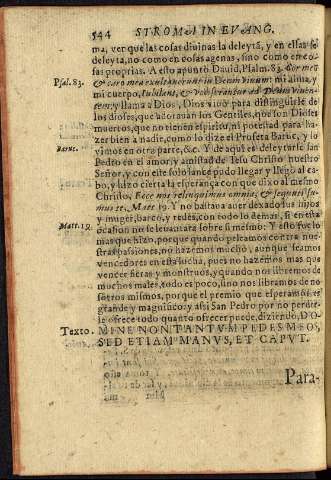 544 STROMA IN EVANG.
ma, ver que las cosas diuinas la deleytã, y en essas se
deleyta, no como en cosas agenas, sino como en co-
sas proprias. A esto apuntò Dauid, Psalm. 83. Cor meũ
Psal. 83. & caro mea exultauerunt in Deum viuum: mi alma, y
mi cuerpo, &
llama a Dios, Dios viuo para distinguirle de
los dioses, que adorauan los Gentiles, que son Dioses
muertos, que no tienen spiritu, ni potestad para ha-
zer bien a nadie, como lo dize el Profeta Baruc, y lo
Baruc. vimos en otra parte, &c. Y de aqui el deleytarse san
Pedro en el amor, y amistad de Iesu Christo nuestro
Señor, y con este solo lance pudo llegar y llegò al ca-
bo, y hizo cierta la esperança con que dixo al mesmo
Christo, Ecce nos reliquimus omnia, & sequuti su-
mus te. Matt. 19. Y no bastaua auer dexado sus hijos
y muger, barco, y redes, con todo lo demas, si en esta
Matt. 19. ocasion no se leuantara sobre si mesmo: Y esto fue lo
mas que hizo, porque quando peleamos contra nue-
stras passiones, no hazemos mucho, aunque seamos
vencedores en esta lucha, pues no hazemos mas que
vencer fieras y monstruos, y quando nos libremos de
muchos males, todo es poco, sino nos libramos de no
sotros mismos, porque el premio que esperamos es
grande y magnifico: y assi San Pedro por no perder-
le ofrece todo quanto ofrecer puede, diziendo, DO-
Texto. MINE NON TANTVM PEDES MEOS,
SED ETIAM MANVS, ET CAPVT.
Para-